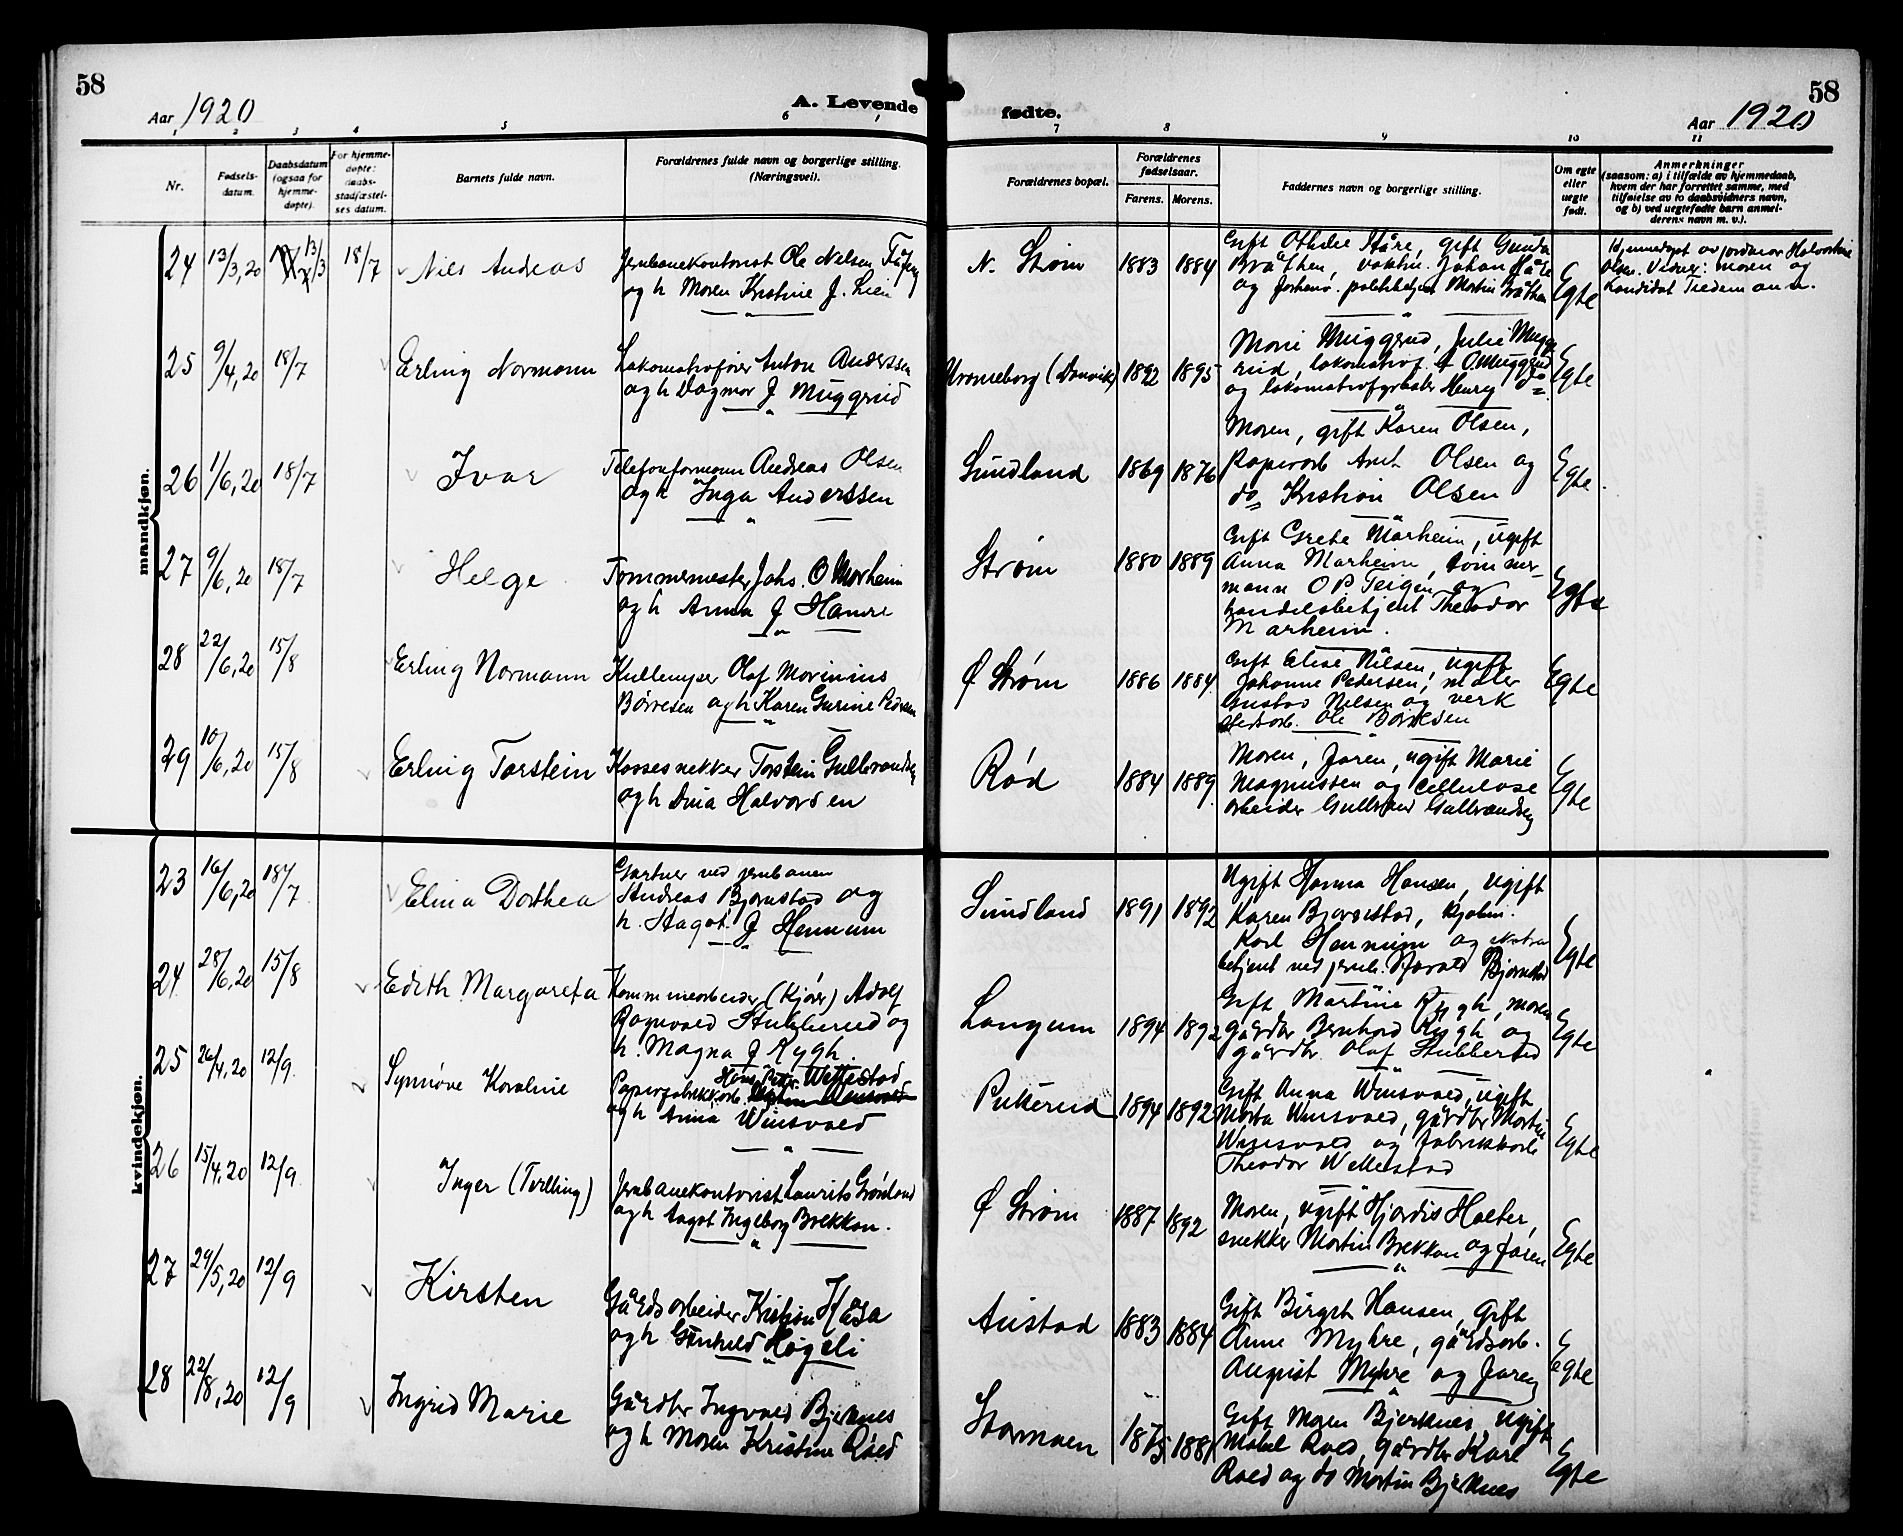 58
Aar 1920
A. Levende
fødte.
Aar 1920
58
1 2 3 4 5 6 7 8 9 10 11
Nr.
Fødsels-
datum.
Daabsdatum
(ogsaa for
hjemme-
døpte).
For hjemme-
døpte:
daabs-
stadfæstel-
ses datum.
Barnets fulde navn.
Forældrenes fulde navn og borgerlige stilling.
(Næringsvei).
Forældrenes bopæl.
Forældrenes
fødselsaar.
Farens. Morens.
Faddernes navn og borgerlige stilling.
Om egte
eller
uegte
født.
Anmerkninger
(saasom: a) i tilfælde av hjemmedaab,
hvem der har forrettet samme, med
tilføielse av to daabsvidners navn,
og b) ved uegtefødte barn anmel-
derens navn m. v.).
mandkjøn.
24 13/3, 20 13/3 18/7 Nils Andreas
Jernbanekontorist Ole Nelsen
og h Maren Kristine f. Lien
N. Strøm 1883 1884
Gift Othilie Håre, gift Gunda
Bråthen, Johan Håre
og politibetjent Martin Bråthen
Egte
Hjemmedøpt av jordmor Halvordine
Olsen. Vidner: moren og
kandidat Tiedemann.
25 9/4, 20 18/7 Erling Normann
Lokomotivfører Anton Anderssen
og h Dagmar f Muggerud
Kronneborg (Danvik) 1892 1895
Marie Muggerud, Julie Mugge
rud, lokomotivf. O. Muggerud
og lokomotivfyrbøter Henry do
Egte
26 1/6, 20 18/7 Ivar
Telefonformann Andreas Olsen
og h Inga Anderssen
Sundland 1869 1876
Moren, gift Karen Olsen,
Papirarb Olsen og
do Kristian Olsen
Egte
27 9/6, 20 18/7 Helge
Tømmermester Johs. O Marheim
og h Anna f Hamre
Strøm 1880 1889
Gift Grete Marheim, ugift
Anna Marheim, tømmer-
mann O P. Teigen og
handelsbetjent Theodor
Marheim.
Egte
28 22/6, 20 15/8 Erling Normann
Kullemper Olaf Marinius
Børresen og h Karen Gurine Pedersen
Ø Strøm 1886 1884
Gift Elise Nilsen, ugift
Johanne Pedersen, maler
Gustav Nilsen og verk
stedarb. Ole Børresen
Egte
29 10/6, 20 15/8 Erling Torstein
Kassesnekker Torstein Gulbrandsen
og h Dina Halvorsen
Rød 1884 1889
Moren, faren, ugift Marie
Magnussen og cellulose
arbeider Gulbrand Gulbrandsen
Egte
kvindekjøn.
23 16/6, 20 18/7 Elina Dorthea
Gartner ved jernbanen
Andreas Bjørnstad og
h. Aagot f Hennum
Sundland 1891 1892
Ugift Hanna Hansen, ugift
Karen Bjørnstad, kjøbm.
Karl Hennum og ekstra
betjent ved jernb. Harald Bjørnstad
Egte
24 28/6, 20 15/8 Edith Margareta
Kommunearbeider (kjører) Adolf
Ragnvald Stubberud og
h. Magna f Rygh.
Langum 1894 1892
Gift Martine Rygh, moren
gårdbr Bernhard Rygh og
gårdbr. Olaf Stubberud
Egte
25 26/4, 20 12/9 Synnøve Karoline
Papirfabrikkarb. Hans Peter Wettestad
og h Anna Winsvold
Pukerud 1894 1892
Gift Anna Winsvold, ugift
Marta Winsvold, gårdbr Martin
Winsvold og fabrikkarb
Theodor Wettestad
Egte
26 15/4, 20 12/9 Inger (Tvilling)
Jernbanekontorist Laurits Grønland
og h Aagot Ingeborg Brekkan.
Ø Strøm 1887 1892
Moren, ugift Hjørdis Holter,
snekker Martin Brekkan og faren
Egte
27 29/5, 20 12/9 Kirsten
Gårdsarbeider Kristian Håsa
og h Gunhild Høgeli
Austad 1883 1884
Gift Birgit Hansen, gift
Anne Myhre, gårdsarb.
August Myhre og faren
Egte
28 22/8, 20 12/9 Ingrid Marie
Gårdbr Ingvald Bjerknes
og h Maren Kristine Roed
Stormoen 1875 1881
Gift Maren Bjerknes, ugift
Mabel Roed, gårdbr Kåre
Roed og do Martin Bjerknes
Egte